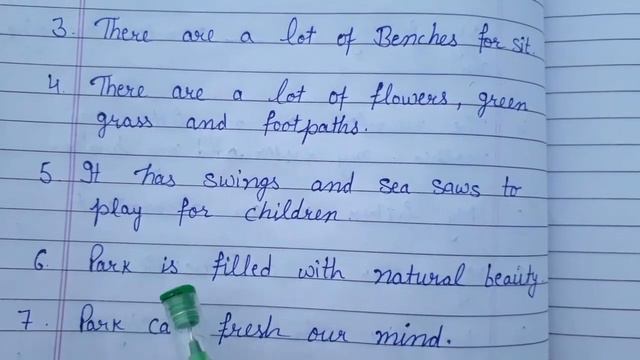 3. There are a lot of Benches for sit.
4. There are a lot of flowers, green
grass and footpaths.
5. It has swings and sea saws to
play for children.
6. Park is filled with natural beauty.
7. Park ca fresh our mind.